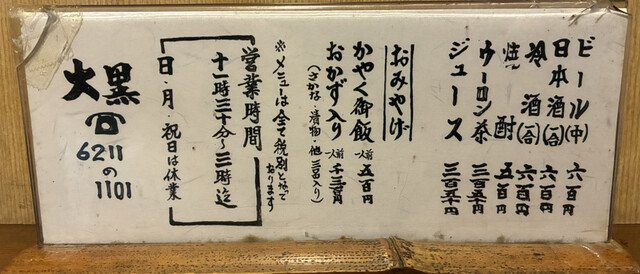 ビール(中) 六百円
日本酒(一合) 六百円
冷酒(一合) 六百円
焼酎 五百円
ウーロン茶
ジュース
おみやげ
かやく御飯 一人前 五百円
おかず入り 一人前 千三百円
(さかな・漬物・他 三品入り)
※メニューは全て税別となって
おります
営業時間
十一時三十分〜三時迄
日・月・祝日は休業
大黒
☎6211の1101